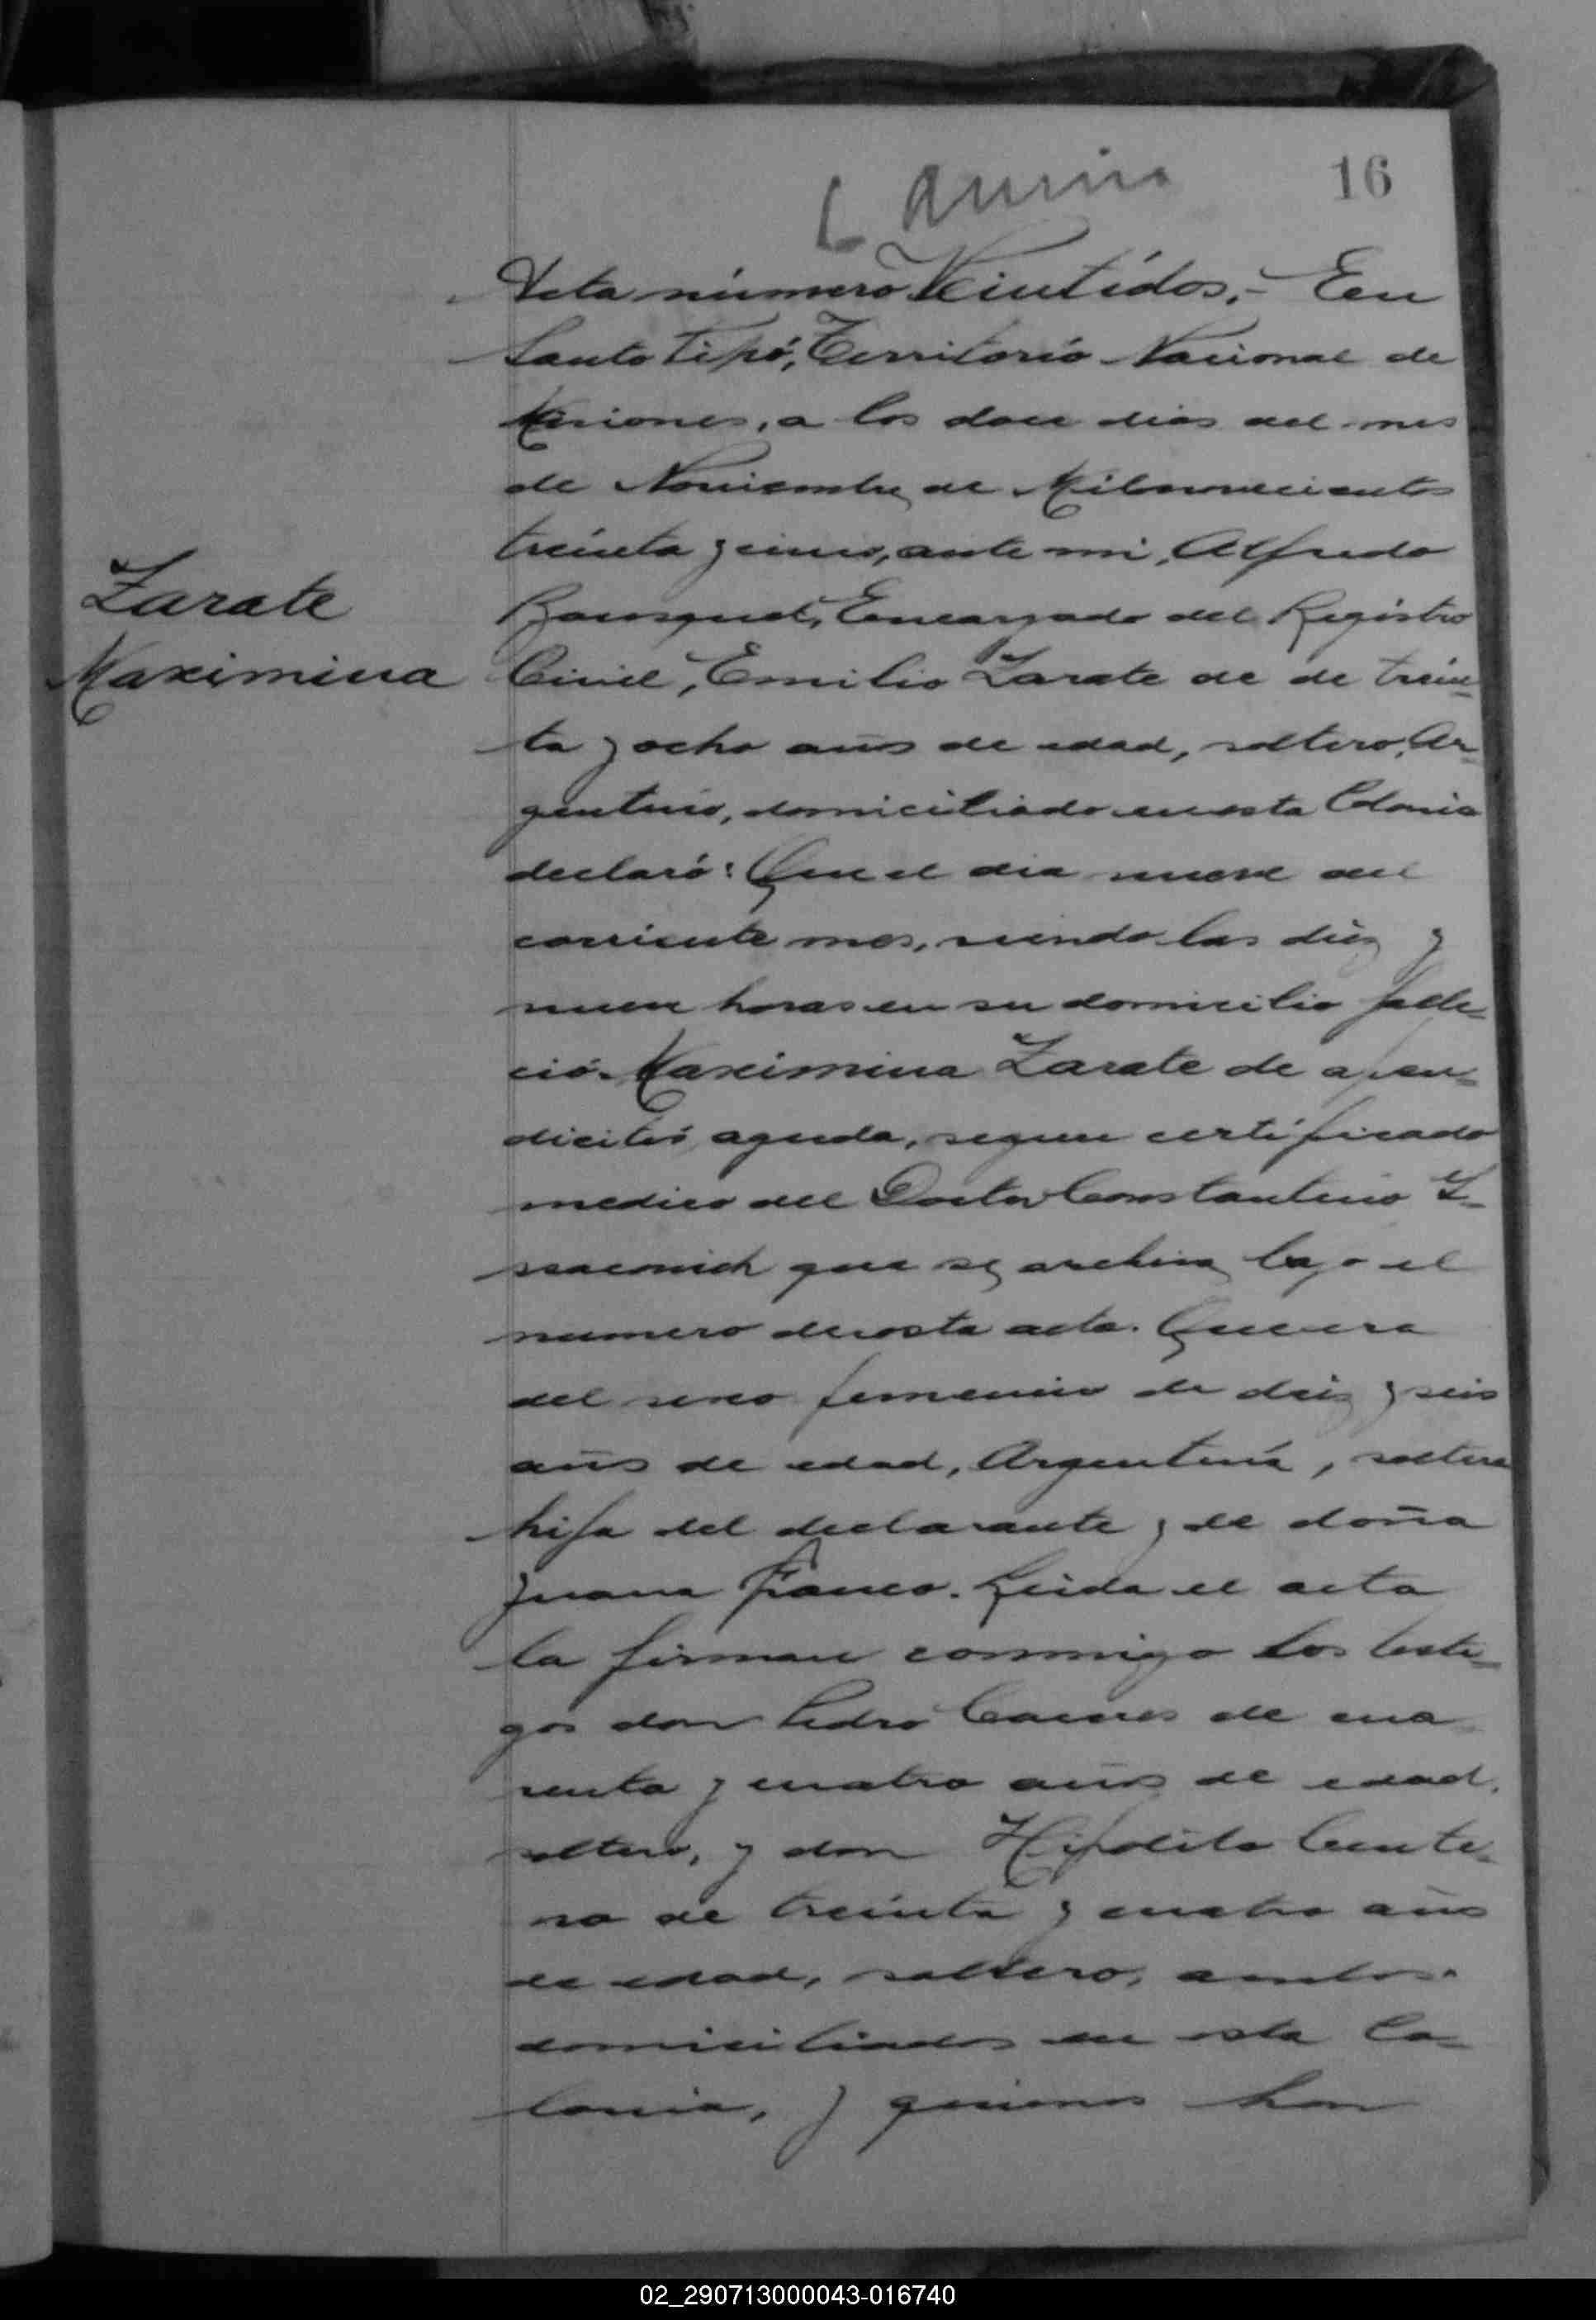 16
Acta número Veintidos.- En
Santo Tipó, Territorio Nacional de
Misiones, a los doce dias del mes
de Noviembre de Mil novecientos
treinta y cinco, ante mi, Alfredo
Zarate
Bousquet, Encargado del Registro
Maximina
Civil, Emilio Zarate de de trein-
ta y ocho años de edad, soltero, Ar-
gentino, domiciliado en esta Colonia
declaró: Que el dia nueve del
corriente mes, siendo las diez y
nueve horas en su domicilio falle-
ció Maximina Zarate de apen-
dicitis aguda, segun certificado
medico del Doctor Constantino
que se archiva bajo el
numero de esta acta. Que era
del sexo femenino de diez y seis
años de edad, Argentina, soltera
hija del declarante y de doña
Juana Franco. Leida el acta
la firman conmigo los testi-
gos don Pedro de cua
renta y cuatro años de edad,
soltero, y don Hipolito Cente-
no de treinta y cuatro años
de edad, soltero, ambos
domiciliados en esta Co-
lonia, y quienes han
02_290713000043-016740